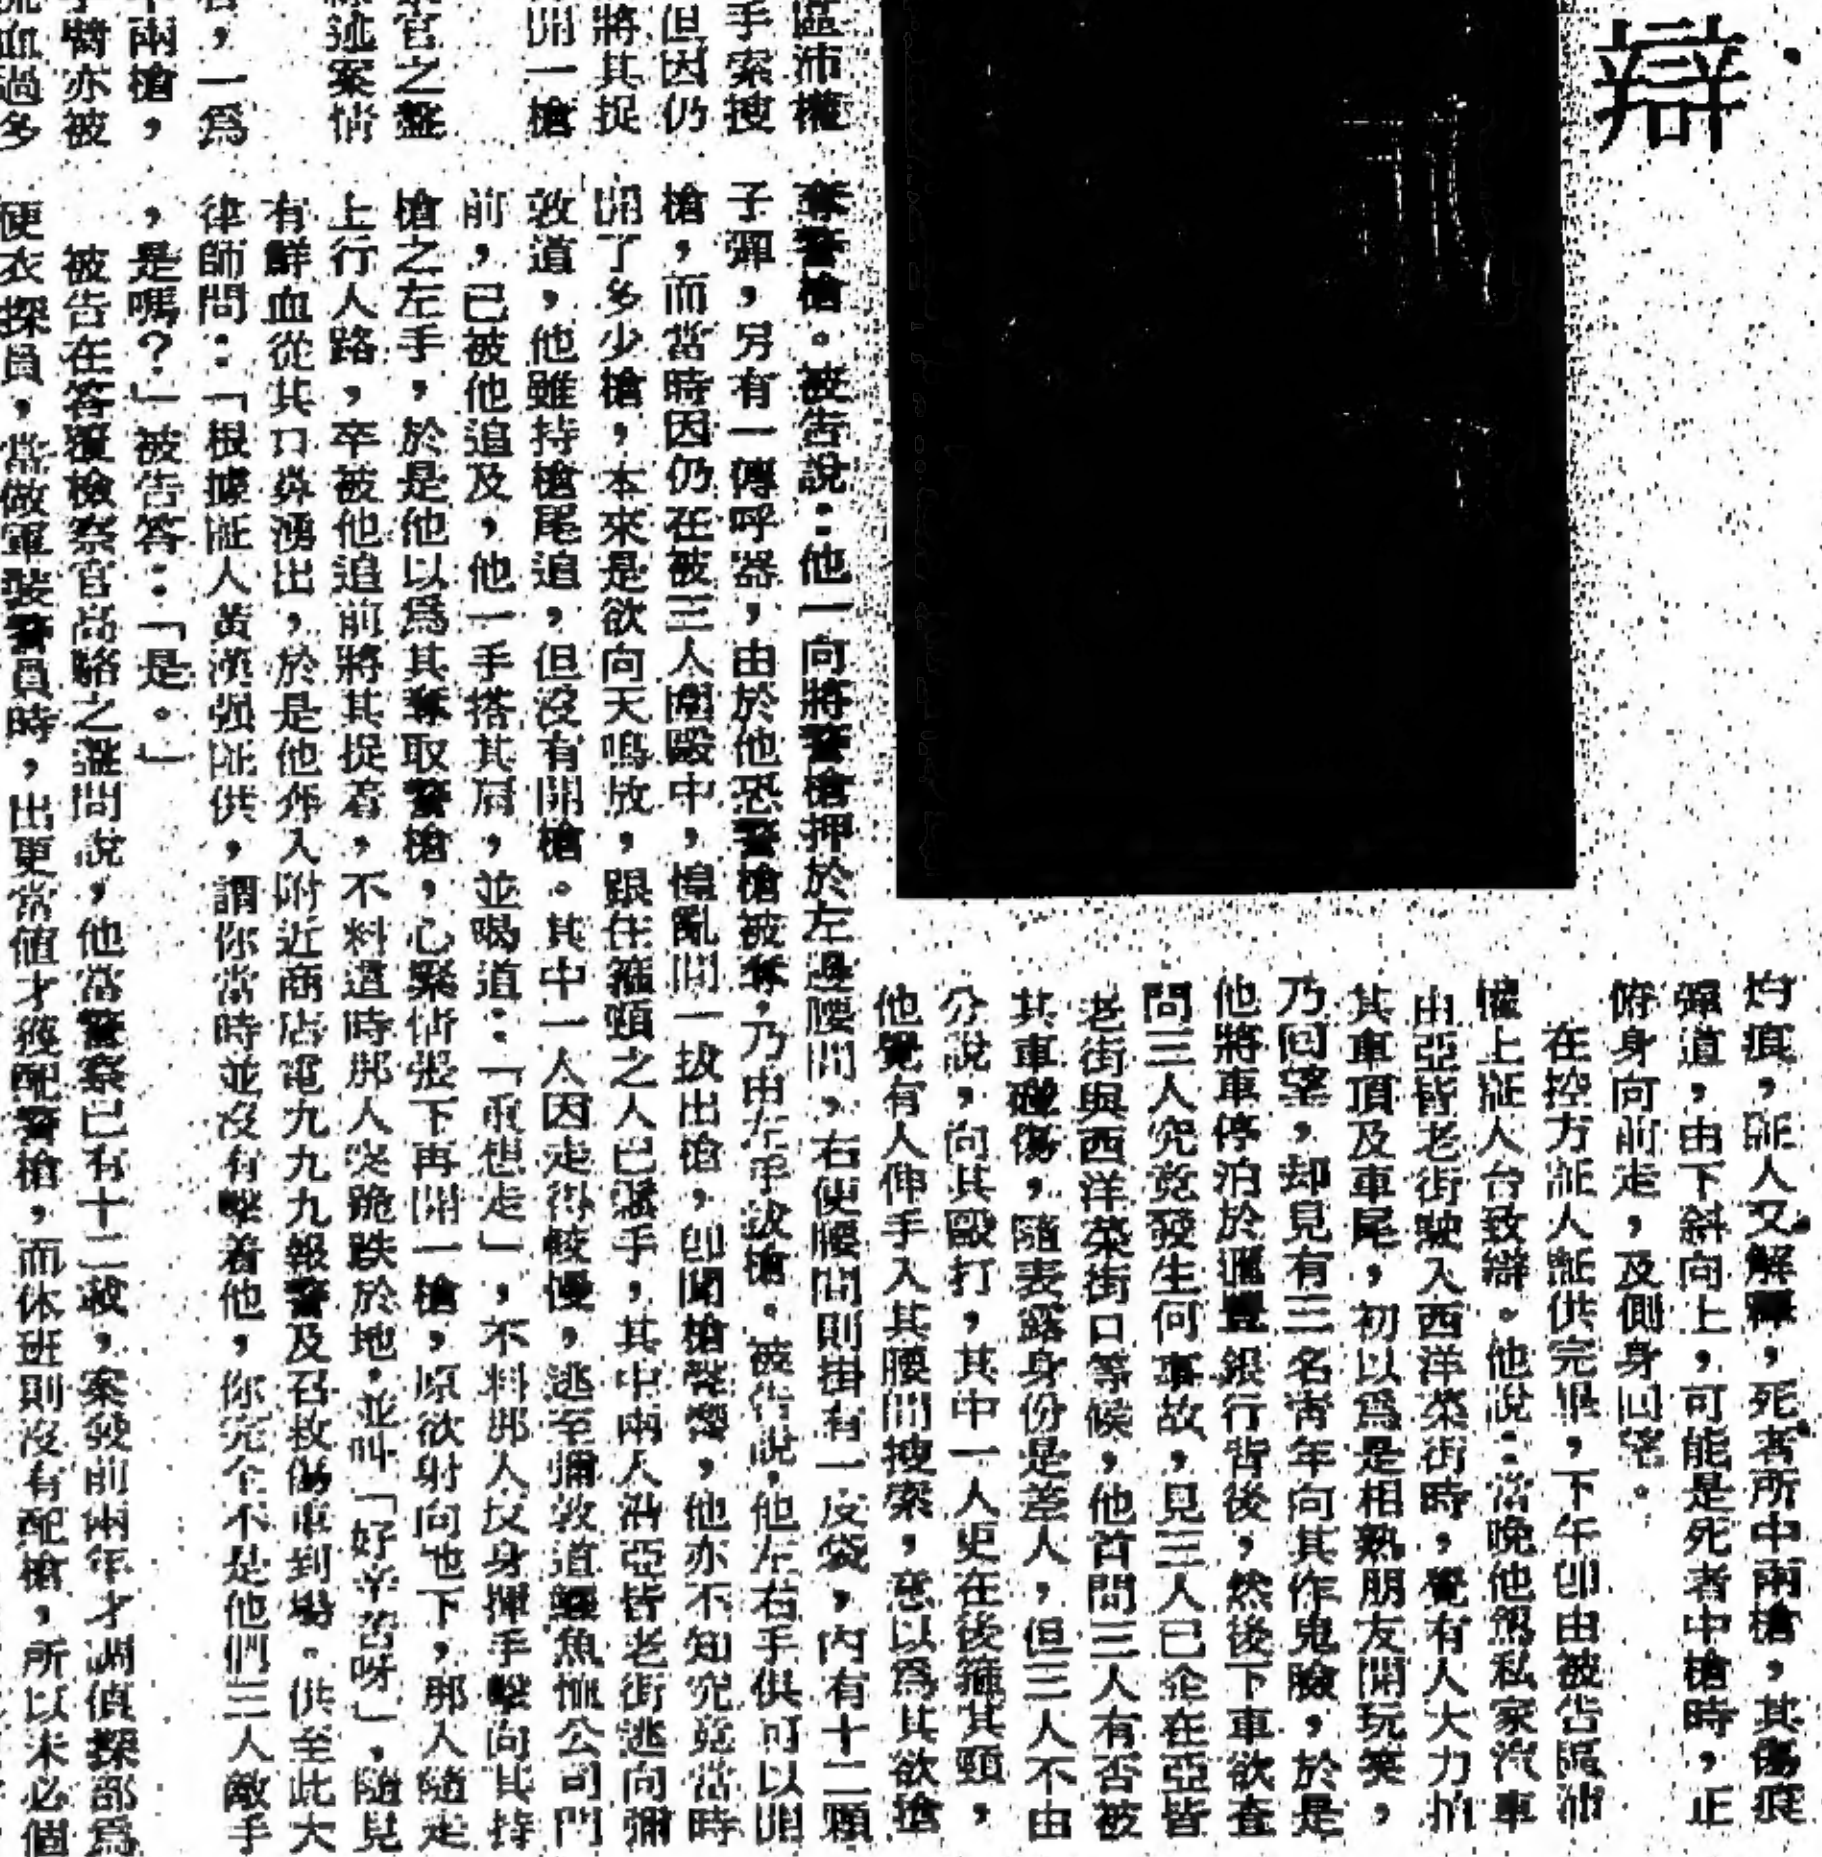 辯
灼痕，証人又解釋，死者所中兩槍，其傷痕
彈道，由下斜向上，可能是死者中槍時，正
俯身向前走，及側身回望。
在控方証人証供完畢，下午即由被告區沛
權上証人台致辯。他說：當晚他駕私家汽車
由亞皆老街駛入西洋菜街時，覺有人大力拍
其車頂及車尾，初以爲是相熟朋友開玩笑，
乃回望，却見有三名靑年向其作鬼臉，於是
他將車停泊於滙豐銀行背後，然後下車欲查
問三人究竟發生何事故，見三人已企在亞皆
老街與西洋菜街口等候，他首問三人有否被
其車碰傷，隨表露身份是差人，但三人不由
分說，向其毆打，其中一人更在後箍其頸，
他覺有人伸手入其腰間搜索，意以爲其欲搶
區沛權
手索搜
但因仍
將其捉
開一槍
官之盤
述案情
，一爲
兩槍，
臂亦被
流血過多
奪警槍。被告說：他一向將警槍押於左邊腰間，右便腰間則掛有一皮袋，內有十二顆
子彈，另有一傳呼器，由於他恐警槍被奪，乃由左手拔槍。被告說，他左右手俱可以開
槍，而當時因仍在被三人圍毆中，惶亂間一拔出槍，即聞槍聲響，他亦不知究竟當時
開了多少槍，本來是欲向天鳴放，跟住箍頸之人已鬆手，其中兩人沿亞皆老街逃向彌
敦道，他雖持槍尾追，但沒有開槍。其中一人因走得較慢，逃至彌敦道鱷魚恤公司門
前，已被他追及，他一手搭其肩，並喝道：「重想走」，不料那人反身揮手擊向其持
槍之左手，於是他以爲其奪取警槍，心緊佮張下再開一槍，原欲射向地下，那人隨走
上行人路，卒被他追前將其捉着，不料這時那人突跪跌於地，並叫「好辛苦呀」，隨見
有鮮血從其口鼻湧出，於是他奔入附近商店電九九九報警及召救傷車到場。供至此大
律師問：「根據証人黃漢强証供，謂你當時並沒有擊着他，你完全不是他們三人敵手
，是嗎？」被告答：「是。」
被告在答覆檢察官高駱之盤問說，他當警察已有十二載，案發前兩年才調偵探部爲
便衣探員，當做軍裝警員時，出更當値才獲配警槍，而休班則沒有配槍，所以未必個